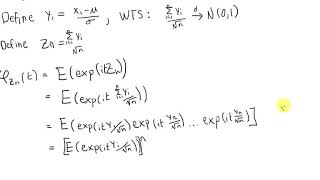 Define Yi = xi-μ/σ, WTS: Σⁿᵢ₌₁ Yi/√n →ᵈ N(0,1)
Define Zn = Σⁿᵢ₌₁ Yi/√n
φZn(t) = E(exp(itZn))
= E(exp(it Σⁿᵢ₌₁ Yi/√n))
= E(exp(it Y₁/√n) exp(it Y₂/√n) ... exp(it Yn/√n)]
= [E(exp(it Yi/√n))]ⁿ